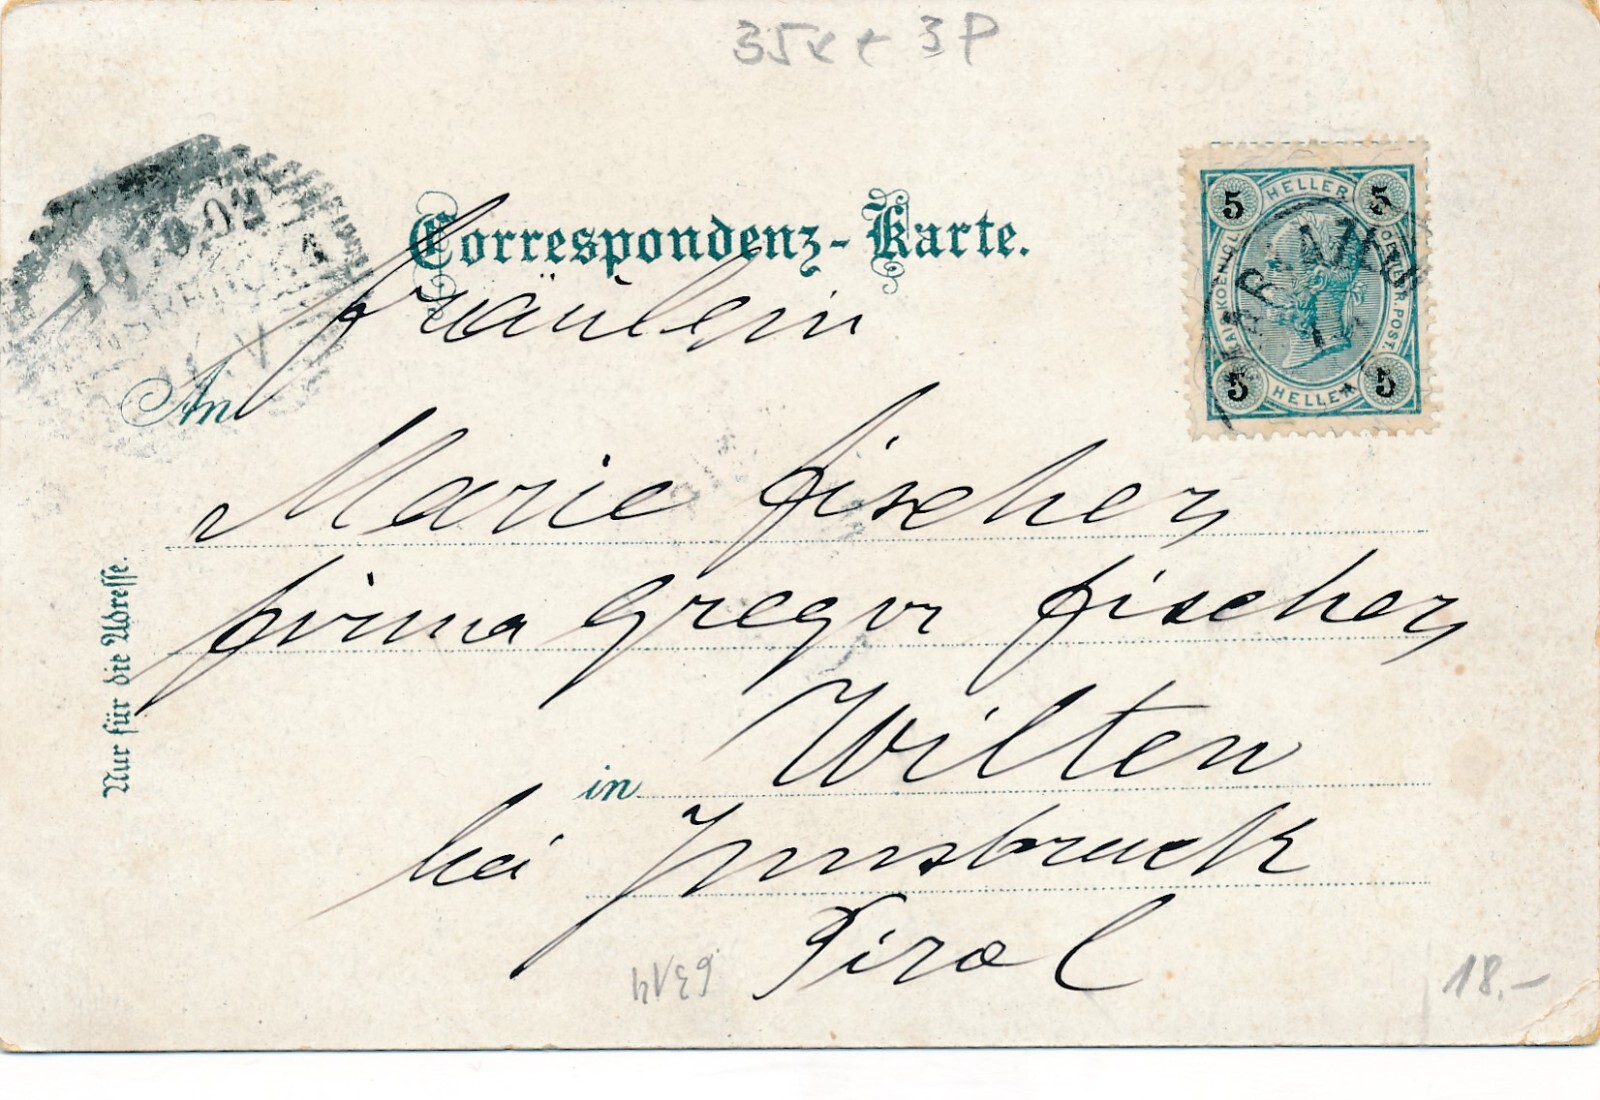 35x+ 3P
Correspondenz-Karte.
5 HELLER 5
5 HELLER 5
Fräulein
An
Marie Fischer,
Firma Gregor Fischer,
in Wilten
bei Innsbruck
Tirol
Nur für die Adresse.
6314
18.-